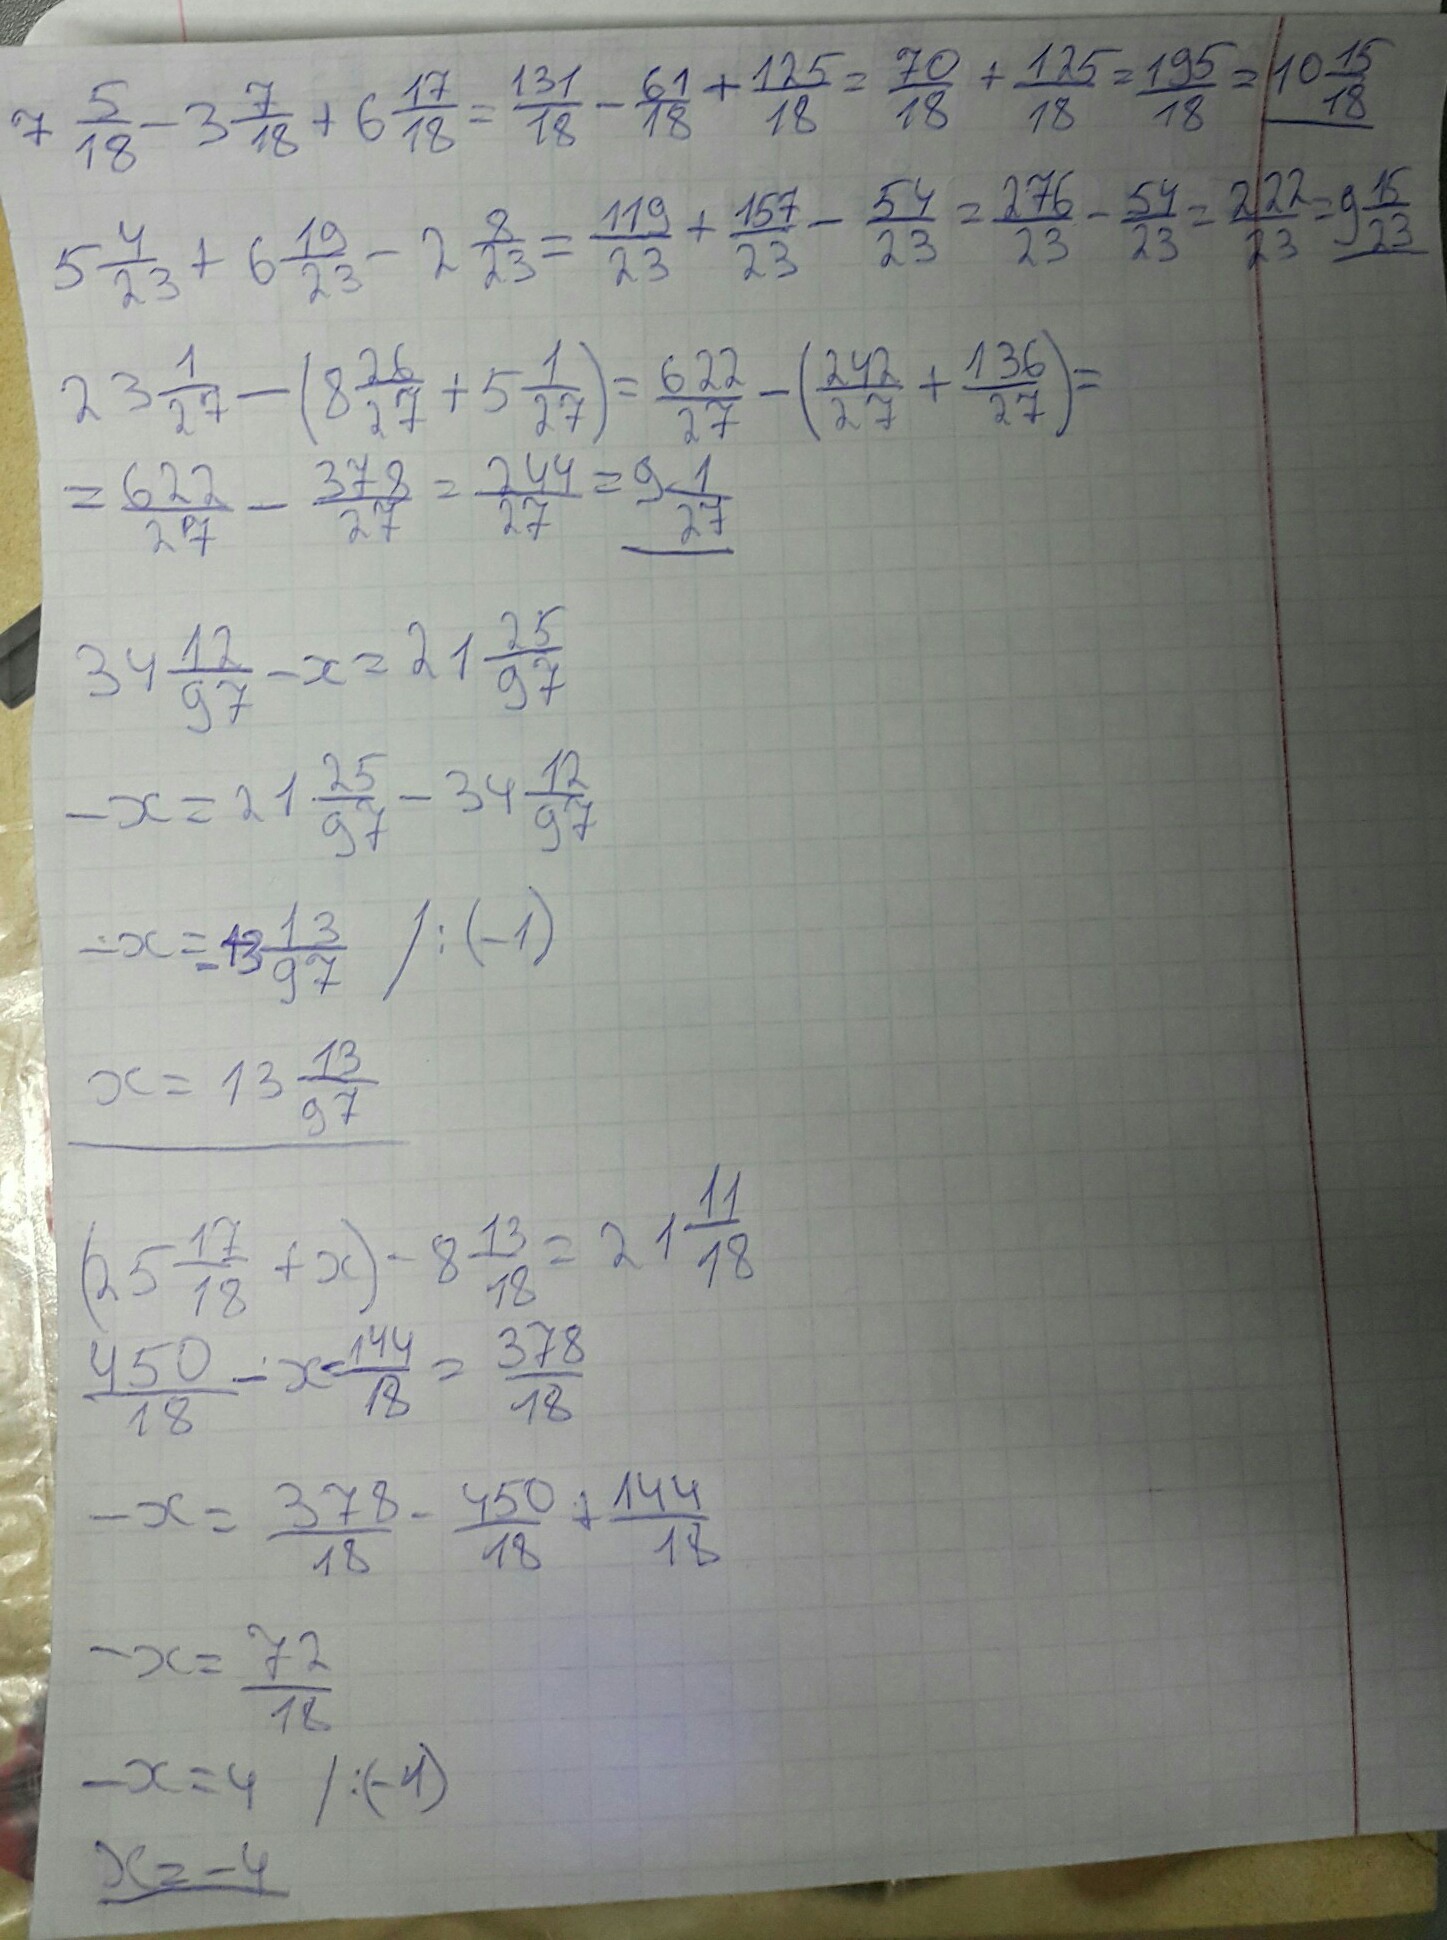 7 5/18 - 3 7/18 + 6 17/18 = 131/18 - 61/18 + 125/18 = 70/18 + 125/18 = 195/18 = 10 15/18
5 4/23 + 6 19/23 - 2 8/23 = 119/23 + 157/23 - 54/23 = 276/23 - 54/23 = 222/23 = 9 15/23
23 1/27 - (8 26/27 + 5 1/27) = 622/27 - (242/27 + 136/27) =
= 622/27 - 378/27 = 244/27 = 9 1/27
34 12/97 - x = 21 25/97
-x = 21 25/97 - 34 12/97
-x = -13 13/97 /:(-1)
x = 13 13/97
(25 17/18 + x) - 8 13/18 = 21 11/18
450/18 - x - 144/18 = 378/18
-x = 378/18 - 450/18 + 144/18
-x = 72/18
-x = 4 /:(-1)
x = -4